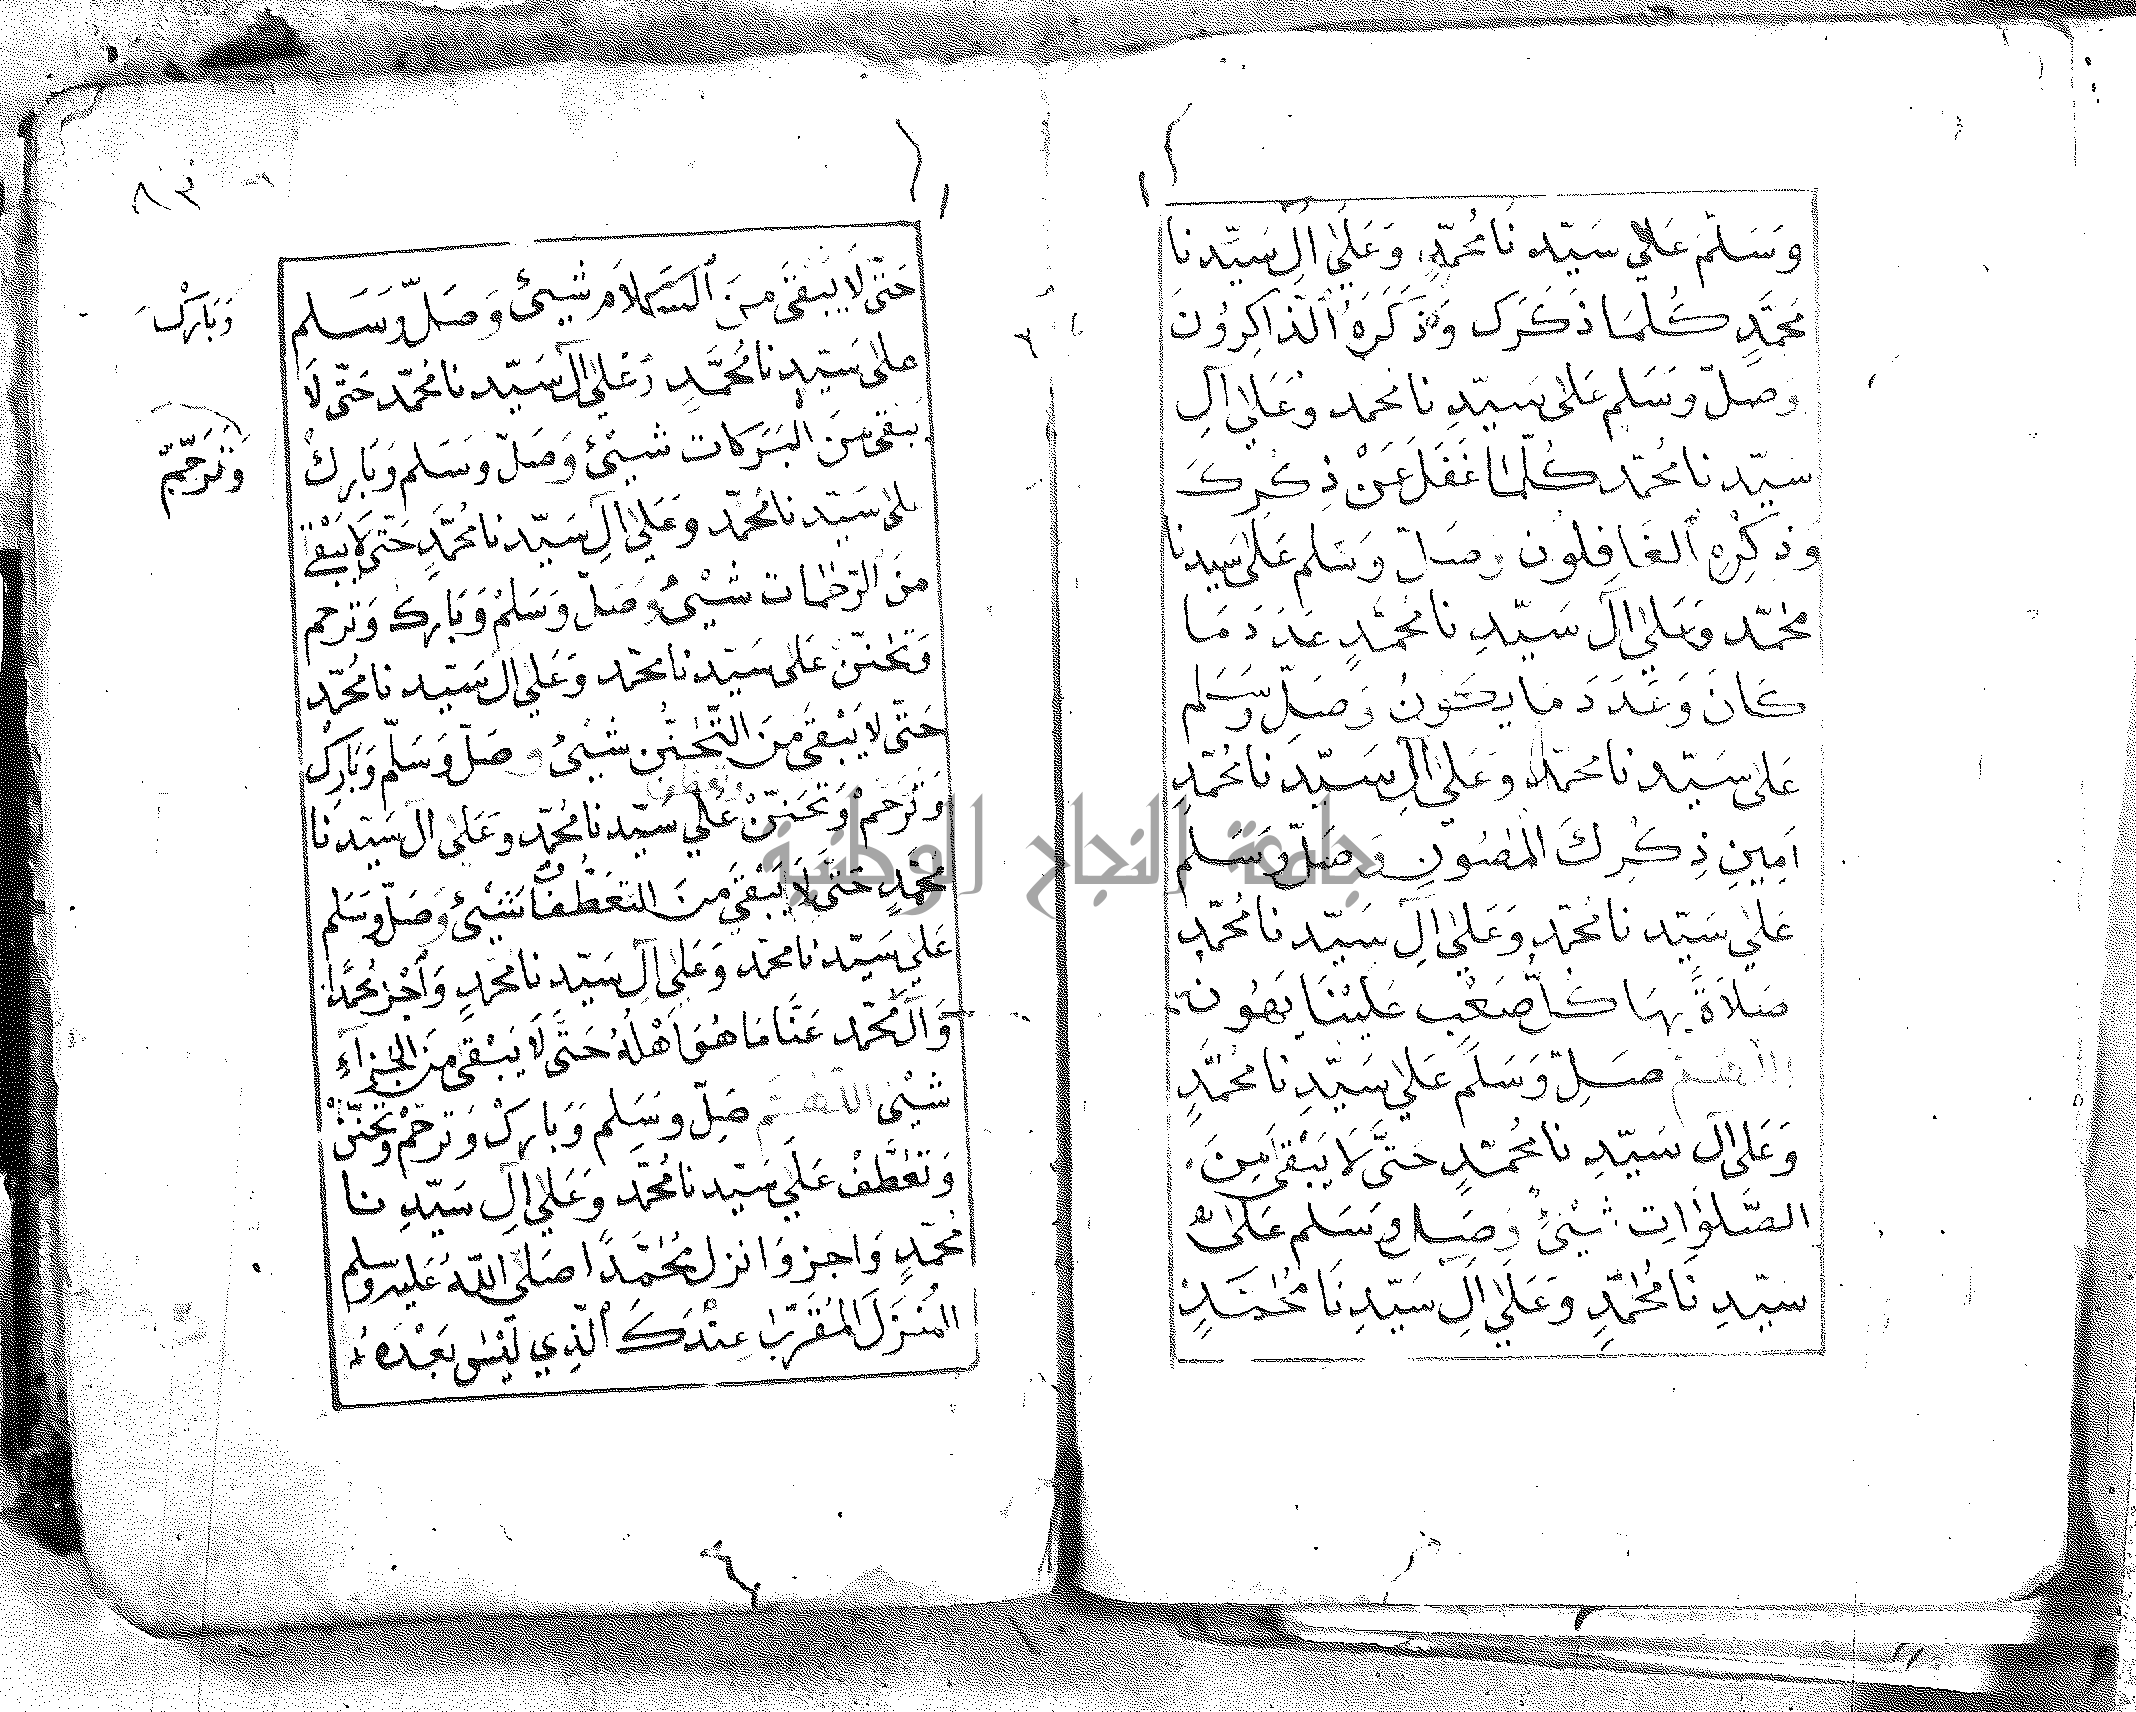 وَسَلِّمْ عَلَى سَيِّدِنَا مُحَمَّدٍ وَعَلَى آلِ سَيِّدِنَا
مُحَمَّدٍ كُلَّمَا ذَكَرَكَ وَذَكَرَهُ الذَّاكِرُونَ
وَصَلِّ وَسَلِّمْ عَلَى سَيِّدِنَا مُحَمَّد وَعَلَى آلِ
سَيِّدِنَا مُحَمَّد كُلَّمَا غَفَلَ عَنْ ذِكْرِكَ
وَذِكْرِهِ الْغَافِلُونَ وَصَلِّ وَسَلِّمْ عَلَى سَيِّدِنَا
مُحَمَّد وَعَلَى آلِ سَيِّدِنَا مُحَمَّدٍ عَدَدَ مَا
كَانَ وَعَدَدَ مَا يَكُونُ وَصَلِّ وَسَلِّمْ
عَلَى سَيِّدِنَا مُحَمَّدٍ وَعَلَى آلِ سَيِّدِنَا مُحَمَّدٍ
امِينِ ذِكْرِكَ الْمَصُونِ وَصَلِّ وَسَلِّمْ
عَلَى سَيِّدِنَا مُحَمَّدٍ وَعَلَى آلِ سَيِّدِنَا مُحَمَّدٍ
صَلَاةً بِهَا كُلُّ صَعْبٍ عَلَيْنَا يَهُونُ
اللهم صَلِّ وَسَلِّمْ عَلَى سَيِّدِنَا مُحَمَّدٍ
وَعَلَى آلِ سَيِّدِنَا مُحَمَّدٍ حَتَّى لَا يَبْقَى مِنَ
الصَّلَوَاتِ شَيْئٌ وَصَلِّ وَسَلِّمْ عَلَى
سَيِّدِنَا مُحَمَّدٍ وَعَلَى آلِ سَيِّدِنَا مُحَمَّدٍ
حَتَّى لَا يَبْقَى مِنَ السَّلَامِ شَيْئٌ وَصَلِّ وَسَلِّمْ
عَلَى سَيِّدِنَا مُحَمَّدٍ وَعَلَى آلِ سَيِّدِنَا مُحَمَّد حَتَّى لَا
يَبْقَى مِنَ الْبَرَكَاتِ شَيْئٌ وَصَلِّ وَسَلِّمْ وَبَارِكْ
عَلَى سَيِّدِنَا مُحَمَّد وَعَلَى آلِ سَيِّدِنَا مُحَمَّدٍ حَتَّى لَا يَبْقَى
مِنَ الرَّحَمَاتِ شَيْئٌ وَصَلِّ وَسَلِّمْ وَبَارِكْ وَتَرَحَّمْ
وَتَحَنَّنْ عَلَى سَيِّدِنَا مُحَمَّد وَعَلَى آلِ سَيِّدِنَا مُحَمَّد
حَتَّى لَا يَبْقَى مِنَ التَّحَنُّنِ شَيْئٌ وَصَلِّ وَسَلِّمْ وَبَارِكْ
وَتَرَحَّمْ وَتَحَنَّنْ عَلَى سَيِّدِنَا مُحَمَّدٍ وَعَلَى آلِ سَيِّدِنَا
مُحَمَّدٍ حَتَّى لَا يَبْقَى مِنَ التَّعَطُّفِ شَيْئٌ وَصَلِّ وَسَلِّمْ
عَلَى سَيِّدِنَا مُحَمَّد وَعَلَى آلِ سَيِّدِنَا مُحَمَّدٍ وَاجْزِ مُحَمَّدًا
وَآلَ مُحَمَّد عَنَّا مَا هُوَ أَهْلُهُ حَتَّى لَا يَبْقَى مِنَ الْجَزَآءِ
شَيْئٌ اللهم صَلِّ وَسَلِّمْ وَبَارِكْ وَتَرَحَّمْ وَتَحَنَّنْ
وَتَعَطَّفْ عَلَى سَيِّدِنَا مُحَمَّد وَعَلَى آلِ سَيِّدِنَا
مُحَمَّدٍ وَاجْزِ وَانْزِلْ مُحَمَّدًا صَلَّى اللهُ عَلَيْهِ وَسَلَّمَ
الْمُنْزَلَ الْمُقَرَّبَ عِنْدَكَ الَّذِي لَيْسَ بَعْدَهُ
وَبَارِكْ
وَتَرَحَّمْ
جامعة النجاح الوطنية